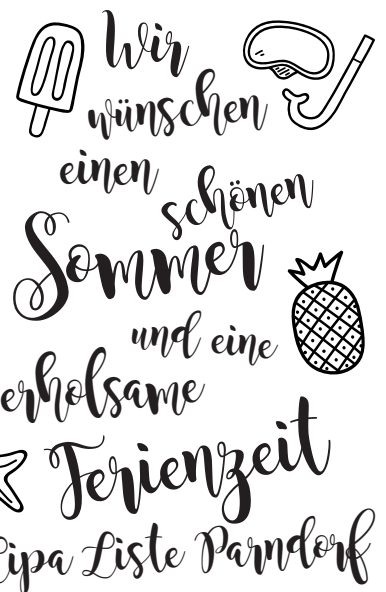 Wir
wünschen
einen
schönen
Sommer
und eine
erholsame
Ferienzeit
Lipa Liste Parndorf